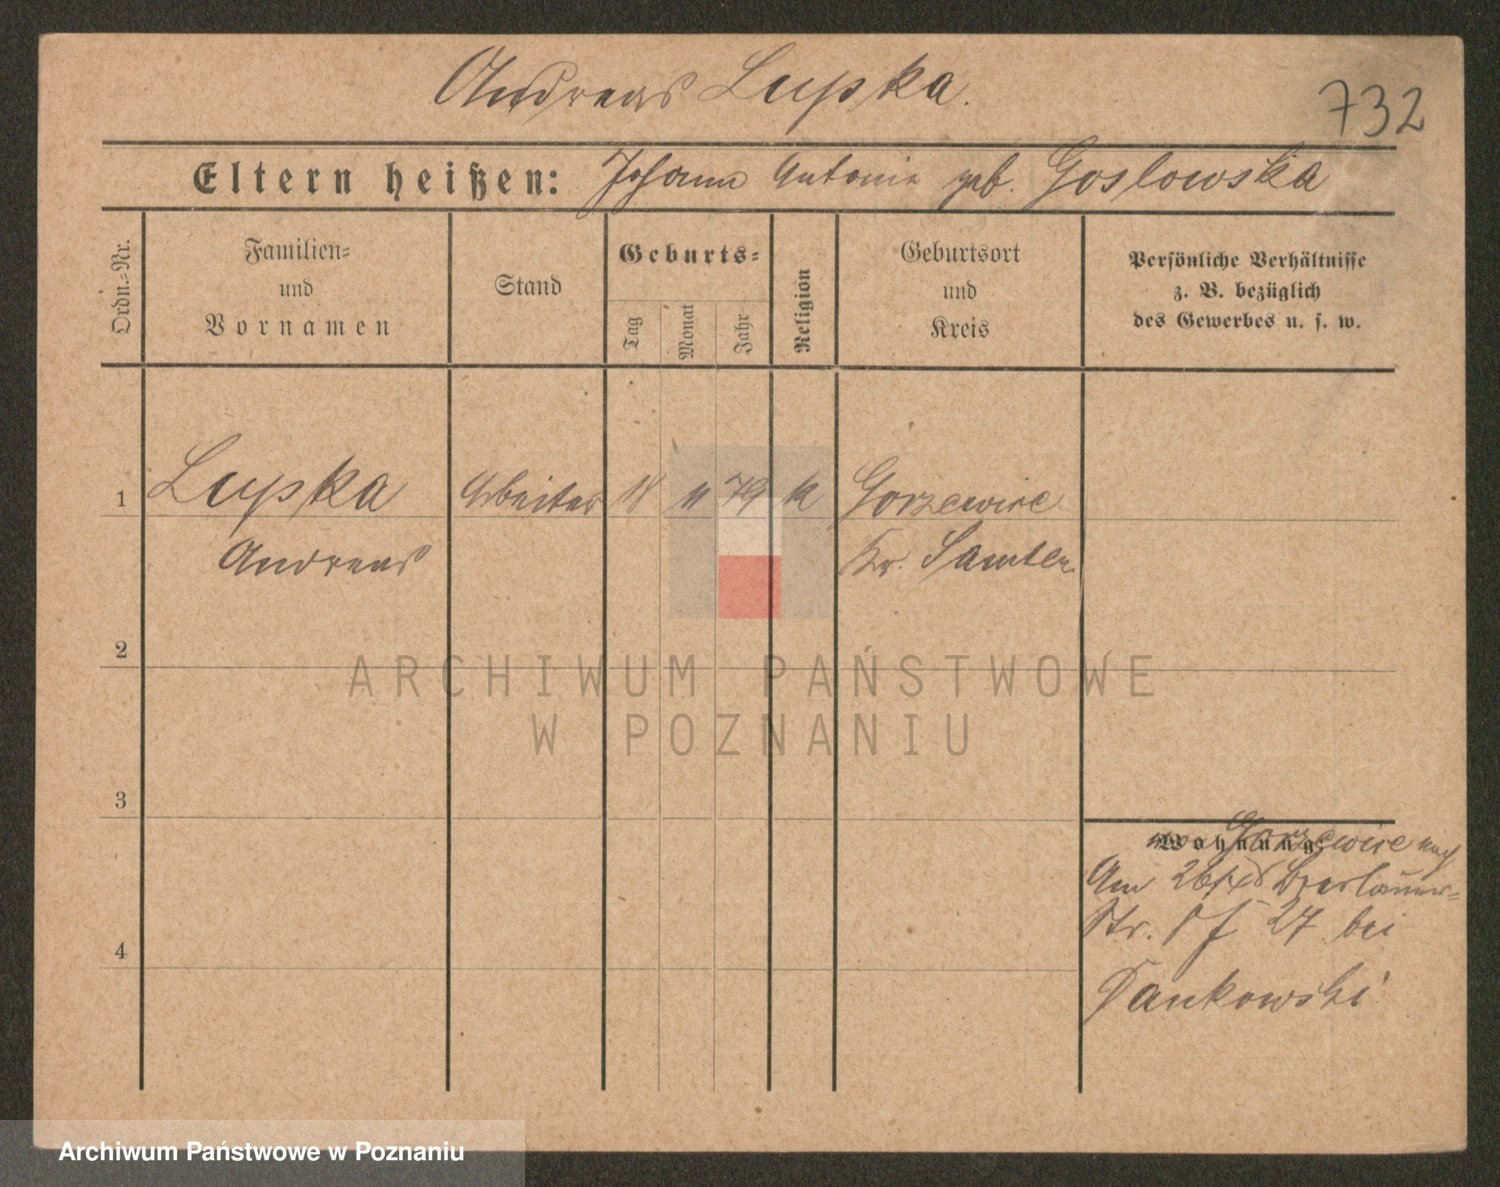 Andreas Lupka.
732
Eltern heißen: Johann Antonie geb. Goslowska
Ordn.=Nr.
Familien=
und
Vornamen
Stand
Geburts=
Tag
Monat
Jahr
Religion
Geburtsort
und
Kreis
Persönliche Verhältnisse
z. B. bezüglich
des Gewerbes u. s. w.
1 Lupka Arbeiter 18 11 79 k Gorzewice
Andreas Kr. Samter
2
3
4
Wohnung
Gorzewice nach
Am 26/ Breslauer=
Str. 27 bei
Jankowski
ARCHIWUM PAŃSTWOWE
W POZNANIU
Archiwum Państwowe w Poznaniu